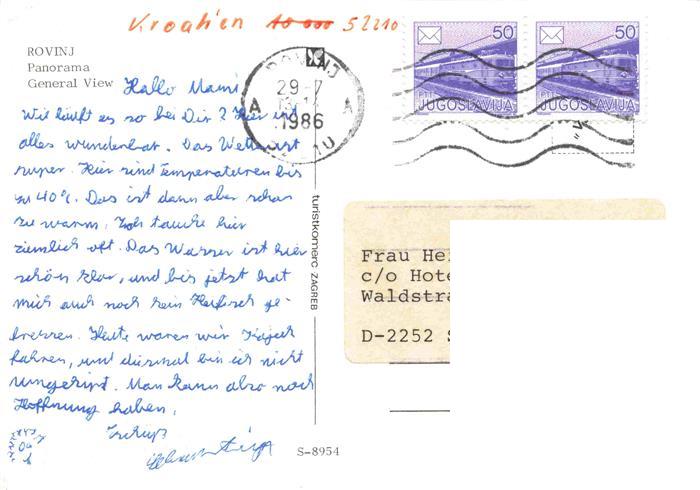 Kroatien 10 000 52210
ROVINJ
Panorama
General View
50
50
PTT JUGOSLAVIJA
PTT JUGOSLAVIJA
ROVINJ
29-7
A A
1986
Hallo Mami
Wie läuft es so bei Dir? Hier ist
alles wunderbar. Das Wetter ist
super. Hier sind Temperaturen bis
zu 40°C. Das ist dann aber schon
zu warm. Ich tauche hier
ziemlich oft. Das Wasser ist hier
schön klar, und bis jetzt hat
mich auch noch kein Haifisch ge-
fressen. Heute waren wir Kajak
fahren, und diesmal bin ich nicht
umgekippt. Man kann also noch
Hoffnung haben.
Tschüß
turistkomerc ZAGREB
Frau
c/o
D-2252
S-8954